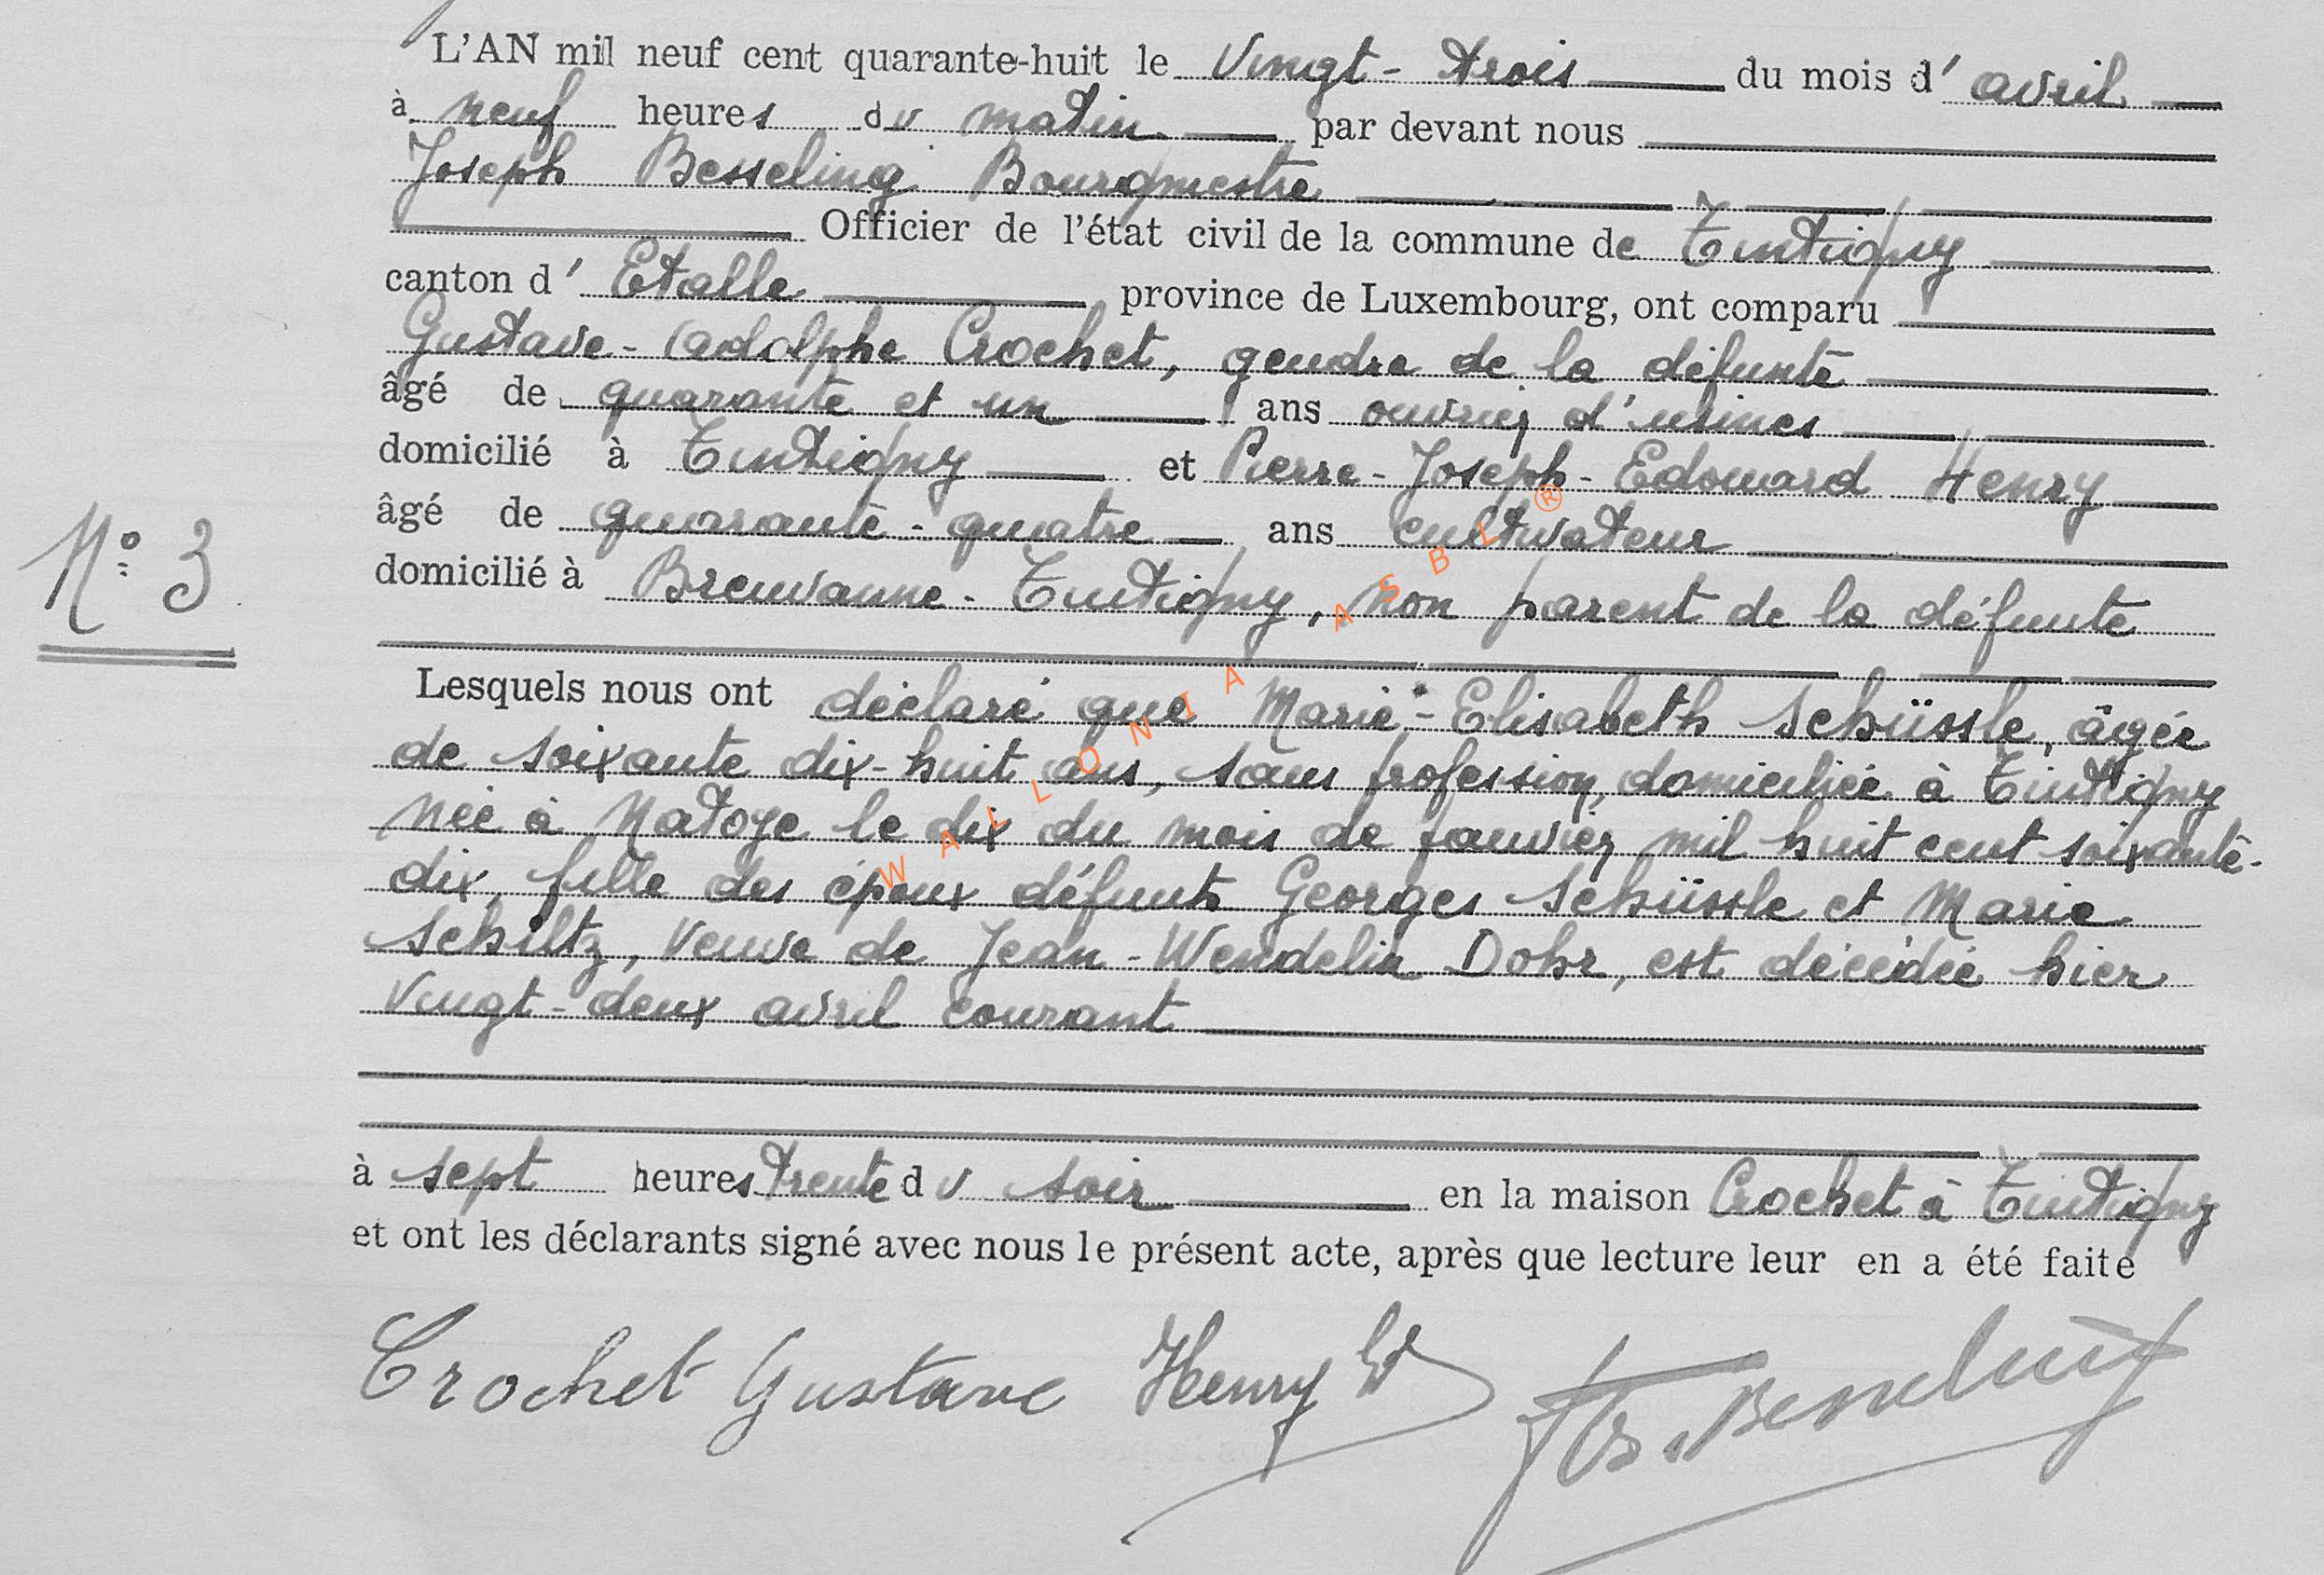 L'AN mil neuf cent quarante-huit le Vingt-trois du mois d'avril
à neuf heures du matin par devant nous
Joseph Besseling Bourgmestre
Officier de l'état civil de la commune de Tintigny
canton d'Etalle province de Luxembourg, ont comparu
Gustave-Adolphe Crochet, gendre de la défunte
âgé de quarante et un ans ouvrier d'usines
domicilié à Tintigny et Pierre-Joseph-Edouard Henry
âgé de quarante-quatre ans cultivateur
domicilié à Breuvanne-Tintigny, non parent de la défunte
N° 3
Lesquels nous ont déclaré que Marie-Elisabeth Schüssle, âgée
de soixante dix-huit ans, sans profession, domiciliée à Tintigny
née à Natoye le dix du mois de janvier mil huit cent soixante-
dix, fille des époux défunts Georges Schüssle et Marie
Schiltz, veuve de Jean-Wendelin Dohr, est décédée hier
vingt-deux avril courant
à sept heures trente du soir en la maison Crochet à Tintigny
et ont les déclarants signé avec nous le présent acte, après que lecture leur en a été faite
Crochet Gustave Henry Ed
WALLONIA ASBL ®